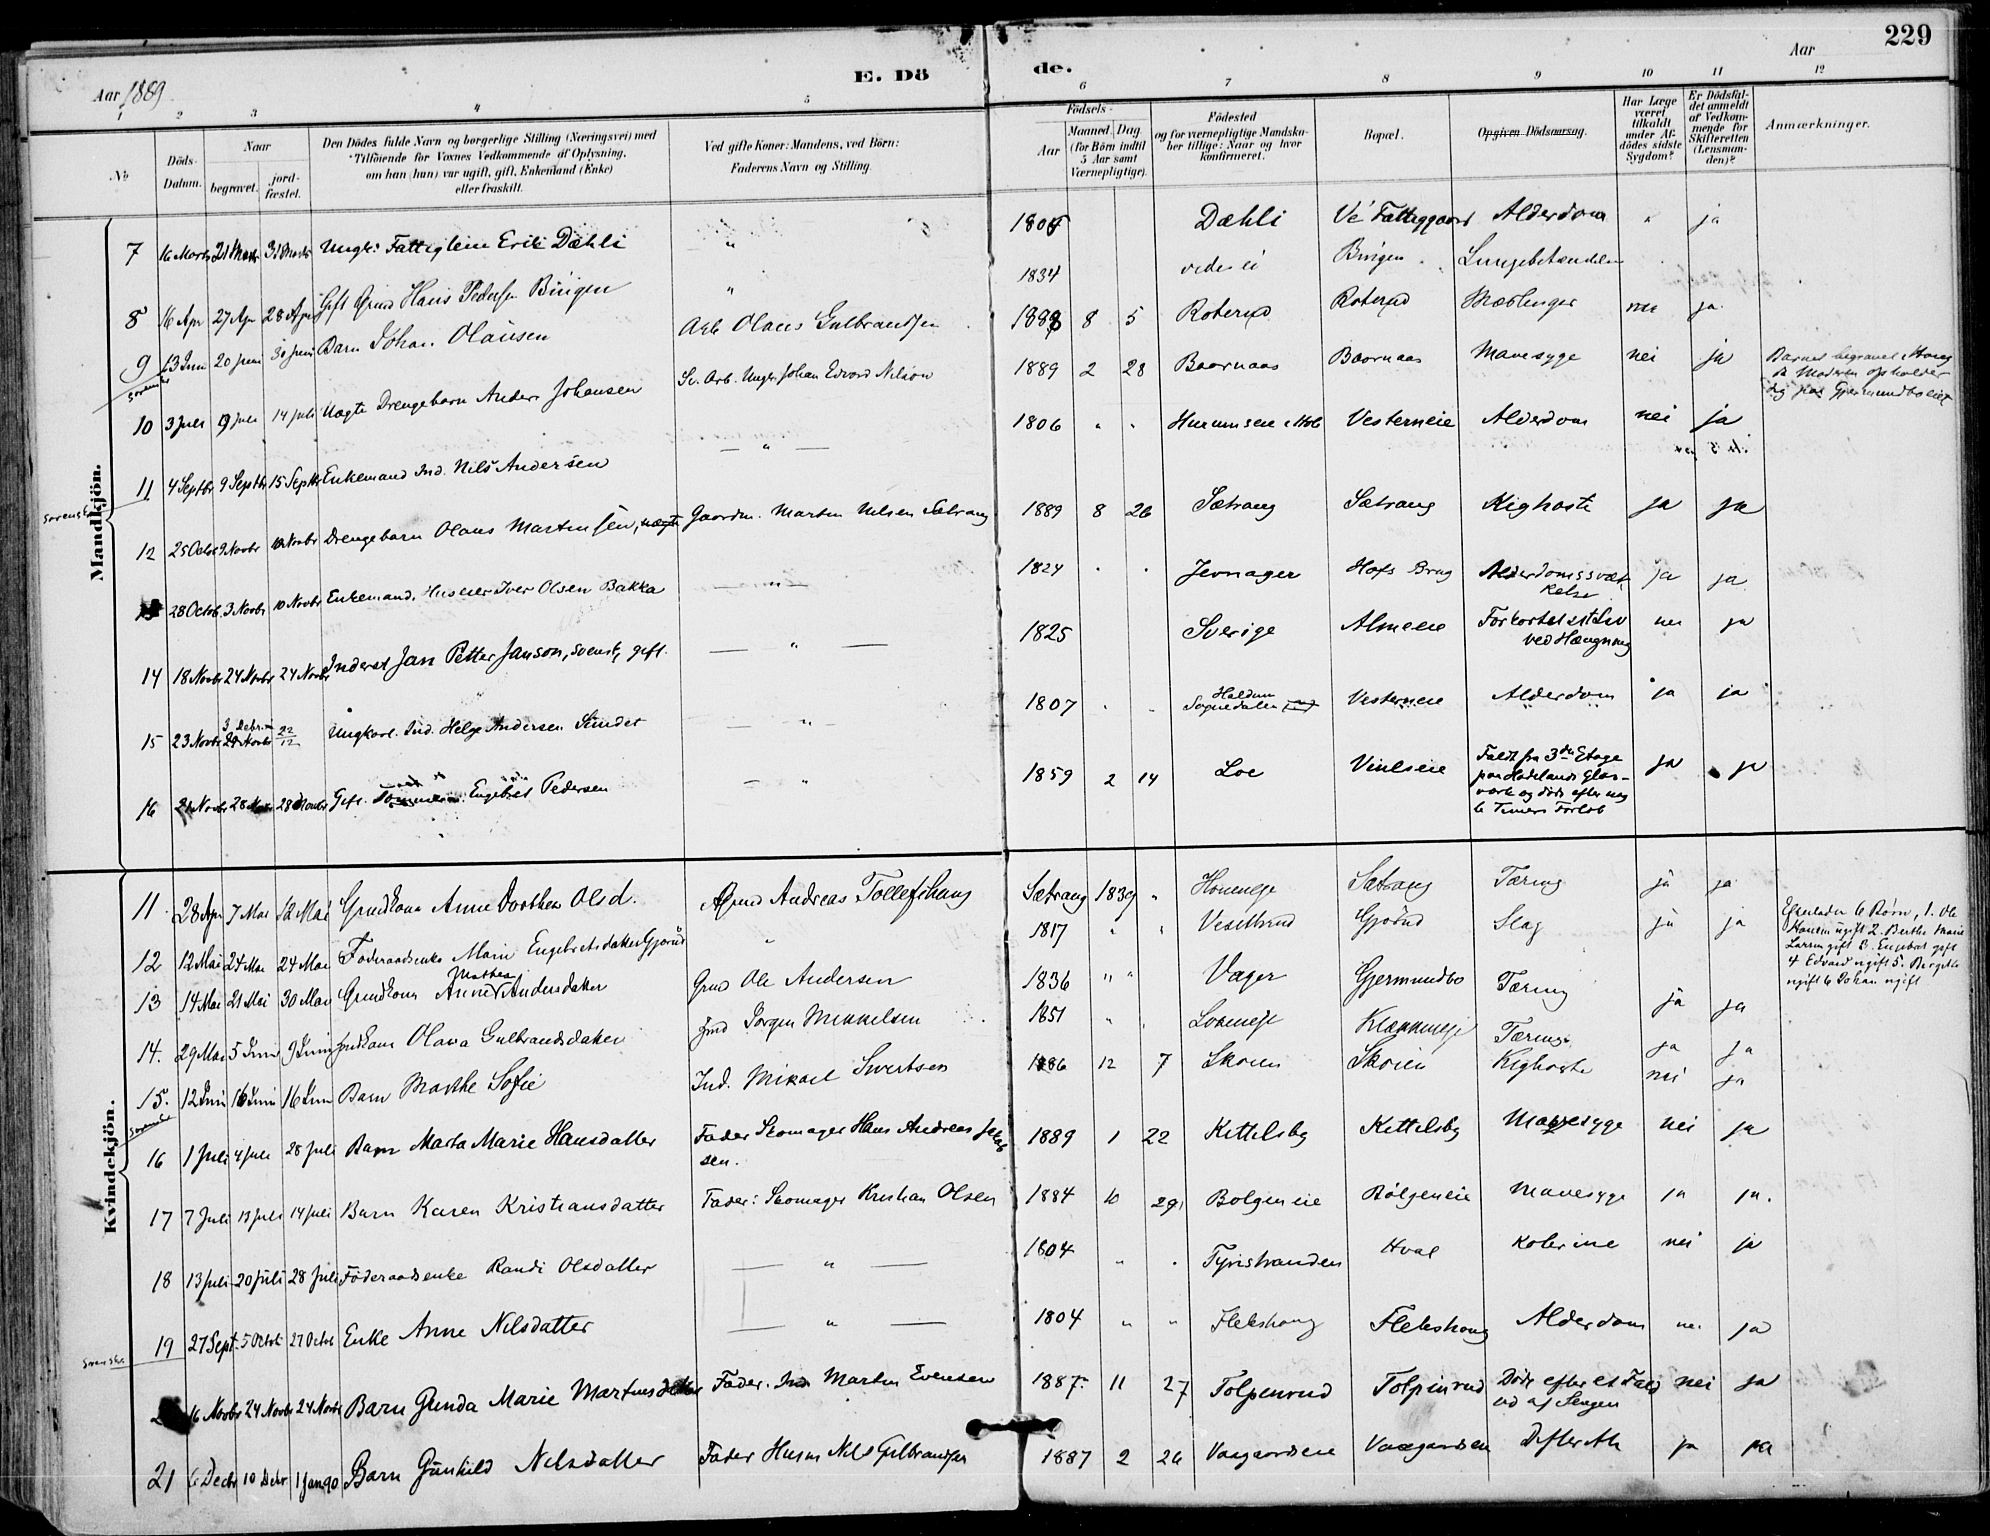 229
Aar 1889
E. Dö de.
Aar
1 2 3 4 5 6 7 8 9 10 11 12
No
Döds-Datum.
Naar
begravet.
jord-fæstet.
Den Dödes fulde Navn og borgerlige Stilling (Næringsvei) med
Tilföiende for Voxnes Vedkommende af Oplysning,
om han (hun) var ugift, gift, Enkemand (Enke)
eller fraskilt.
Ved gifte Koner: Mandens, ved Börn:
Faderens Navn og Stilling.
Födsels-
Aar
Maaned. Dag.
(for Börn indtil
5 Aar samt
Værnepligtige).
Födested
og for værnepligtige Mandska-
ber tillige: Naar og hvor
konfirmeret.
Bopæl.
Opgiven Dödsaarsag.
Har Læge
været
tilkaldt
under Af-
dödes sidste
Sygdom?
Er Dödsfal-
det anmeldt
af Vedkom-
mende for
Skifteretten
(Lensman-
den)?
Anmærkninger.
Mandkjön.
7 16 Marts 21 Marts 31 Marts Ungk: Fattiglem Erik Dæhli " Dæhli Alderdom " ja
8 16 Apr 27 Apr 28 Apr Gift Hans Pedersen Bingen " 1834 Bingen
9 13 Juni 20 Juni 30 Juni Barn Johan Olausen Arb Olaus Gulbrandsen 8 5 Roterud Roterud Mæslinger nei ja
10 3 Juli 9 Juli 14 juli Uægte Drengebarn Anders Johansen Sv. Arb. Ungk. Johan Edvard Nilson 1889 2 28 Baarnaas Baarnaas Mavesyge nei ja
Barnet begravet
Moderen opholder
sig paa Gjermundboeiet
11 4 Septbr 9 Septbr 15 Septbr Enkemand Ind. Nils Andersen — " — 1806 " " Vesterneie Alderdom nei ja
12 25 Octob 9 Novbr 10 Novbr Drengebarn Olaus Martinsen, uægte Gaardm. Martin Nilsen Sætrang 1889 8 26 Sætrang Sætrang Kighoste ja ja
28 Octob. 3 Novbr 10 Novbr Enkemand. Huseier Iver Olsen Bakka — " — 1824 Jevnager Hofs Brug Alderdomssvæk-
kelse ja ja
14 18 Novbr 24 Novbr 24 Novbr Inderst Jan Petter Janson, svensk, gift. — " — 1825 Sverige Almeie Forkortet sit Liv
ved Hængning nei ja
15 23 Novbr 3 Debr. 22/12 Ungkarl. Ind. Helge Andersen Sundet — " — 1807 Sognedalen Vesterneie Alderdom ja ja
16 21 Novbr 28 Novbr 28 Novbr Gift. Engebret Pedersen — " 1859 2 14 Loe Vinlseie Faldt fra 3die Etage
paa Hadelands Glas-
værk og döde efter nog
le Timers Forlöb ja ja
Kvindekjön.
11 28 Apr 7 Mai 12 Mai Grudkone Anne Dorthea Olsd. Andreas Sætrang 1839 " Honeneie Sætrang Tæring ja ja
12 12 Mai 24 Mai 24 Mai Föderaadsenke Marie Engebretsdatter Gjörud " 1817 " " Gjörud Slag ja ja
Efterlader 6 Børn, 1. Ole
Hansen ugift 2. Berthe Marie
Larsen gift 3. Engebret gift
4 Edvard ugift 5. Birgithe
ugift 6 Johan ugift
13 14 Mai 21 Mai 30 Mai Grudkone Anne Mathea Andersdatter Grud Ole Andersen 1836 " " Vager Gjermundbo Tæring ja ja
14. 29 Mai 5 Juni 9 Juni Grudkone Olava Gulbrandsdatter Grud Jörgen Mikkelsen 1851 " Tæring ja ja
15. 12 Juni 16 Juni 16 Juni Barn Marthe Sofie Ind. Mikael Sivertsen 1886 12 7 Skoien Skoien Kighoste nei ja
16 1 Juli 4 juli 28 juli Barn Marta Marie Hansdatter Fader Skomager Hans Andreas Jakob
sen. 1889 1 22 Kittelsby Kittelsby Mavesyge nei ja
17 7 Juli 13 juli 14 juli Barn Karen Kristiansdatter Fader: Skomager Kristian Olsen 1884 10 29 Bolgeneie Bölgeneie Mavesyge ja ja.
18 13 juli 20 juli 28 Juli Föderaadsenke Randi Olsdatter — " — 1804 " Tyristranden Hval Kolerine nei ja
19 27 Sept. 5 Octob 27 Octob Enke Anne Nilsdatter — " — 1804 " " Flekshoug Flekshoug Alderdom nei ja
16 Novbr 24 Novbr 24 Novbr Barn Gunda Marie Martinsdatter Fader. Ind Martin Evensen 1887. 11 27 Tolpinrud Tolpinrud Döde efter et Fald
ud af Sengen nei ja
21 6 Decbr 10 Debr 1 Jan 90 Barn Gunhild Nilsdatter Fader Husm Nils Gulbrandsen 1887 2 26 Vaagaardseie Vaagaardseie Difterith ja ja